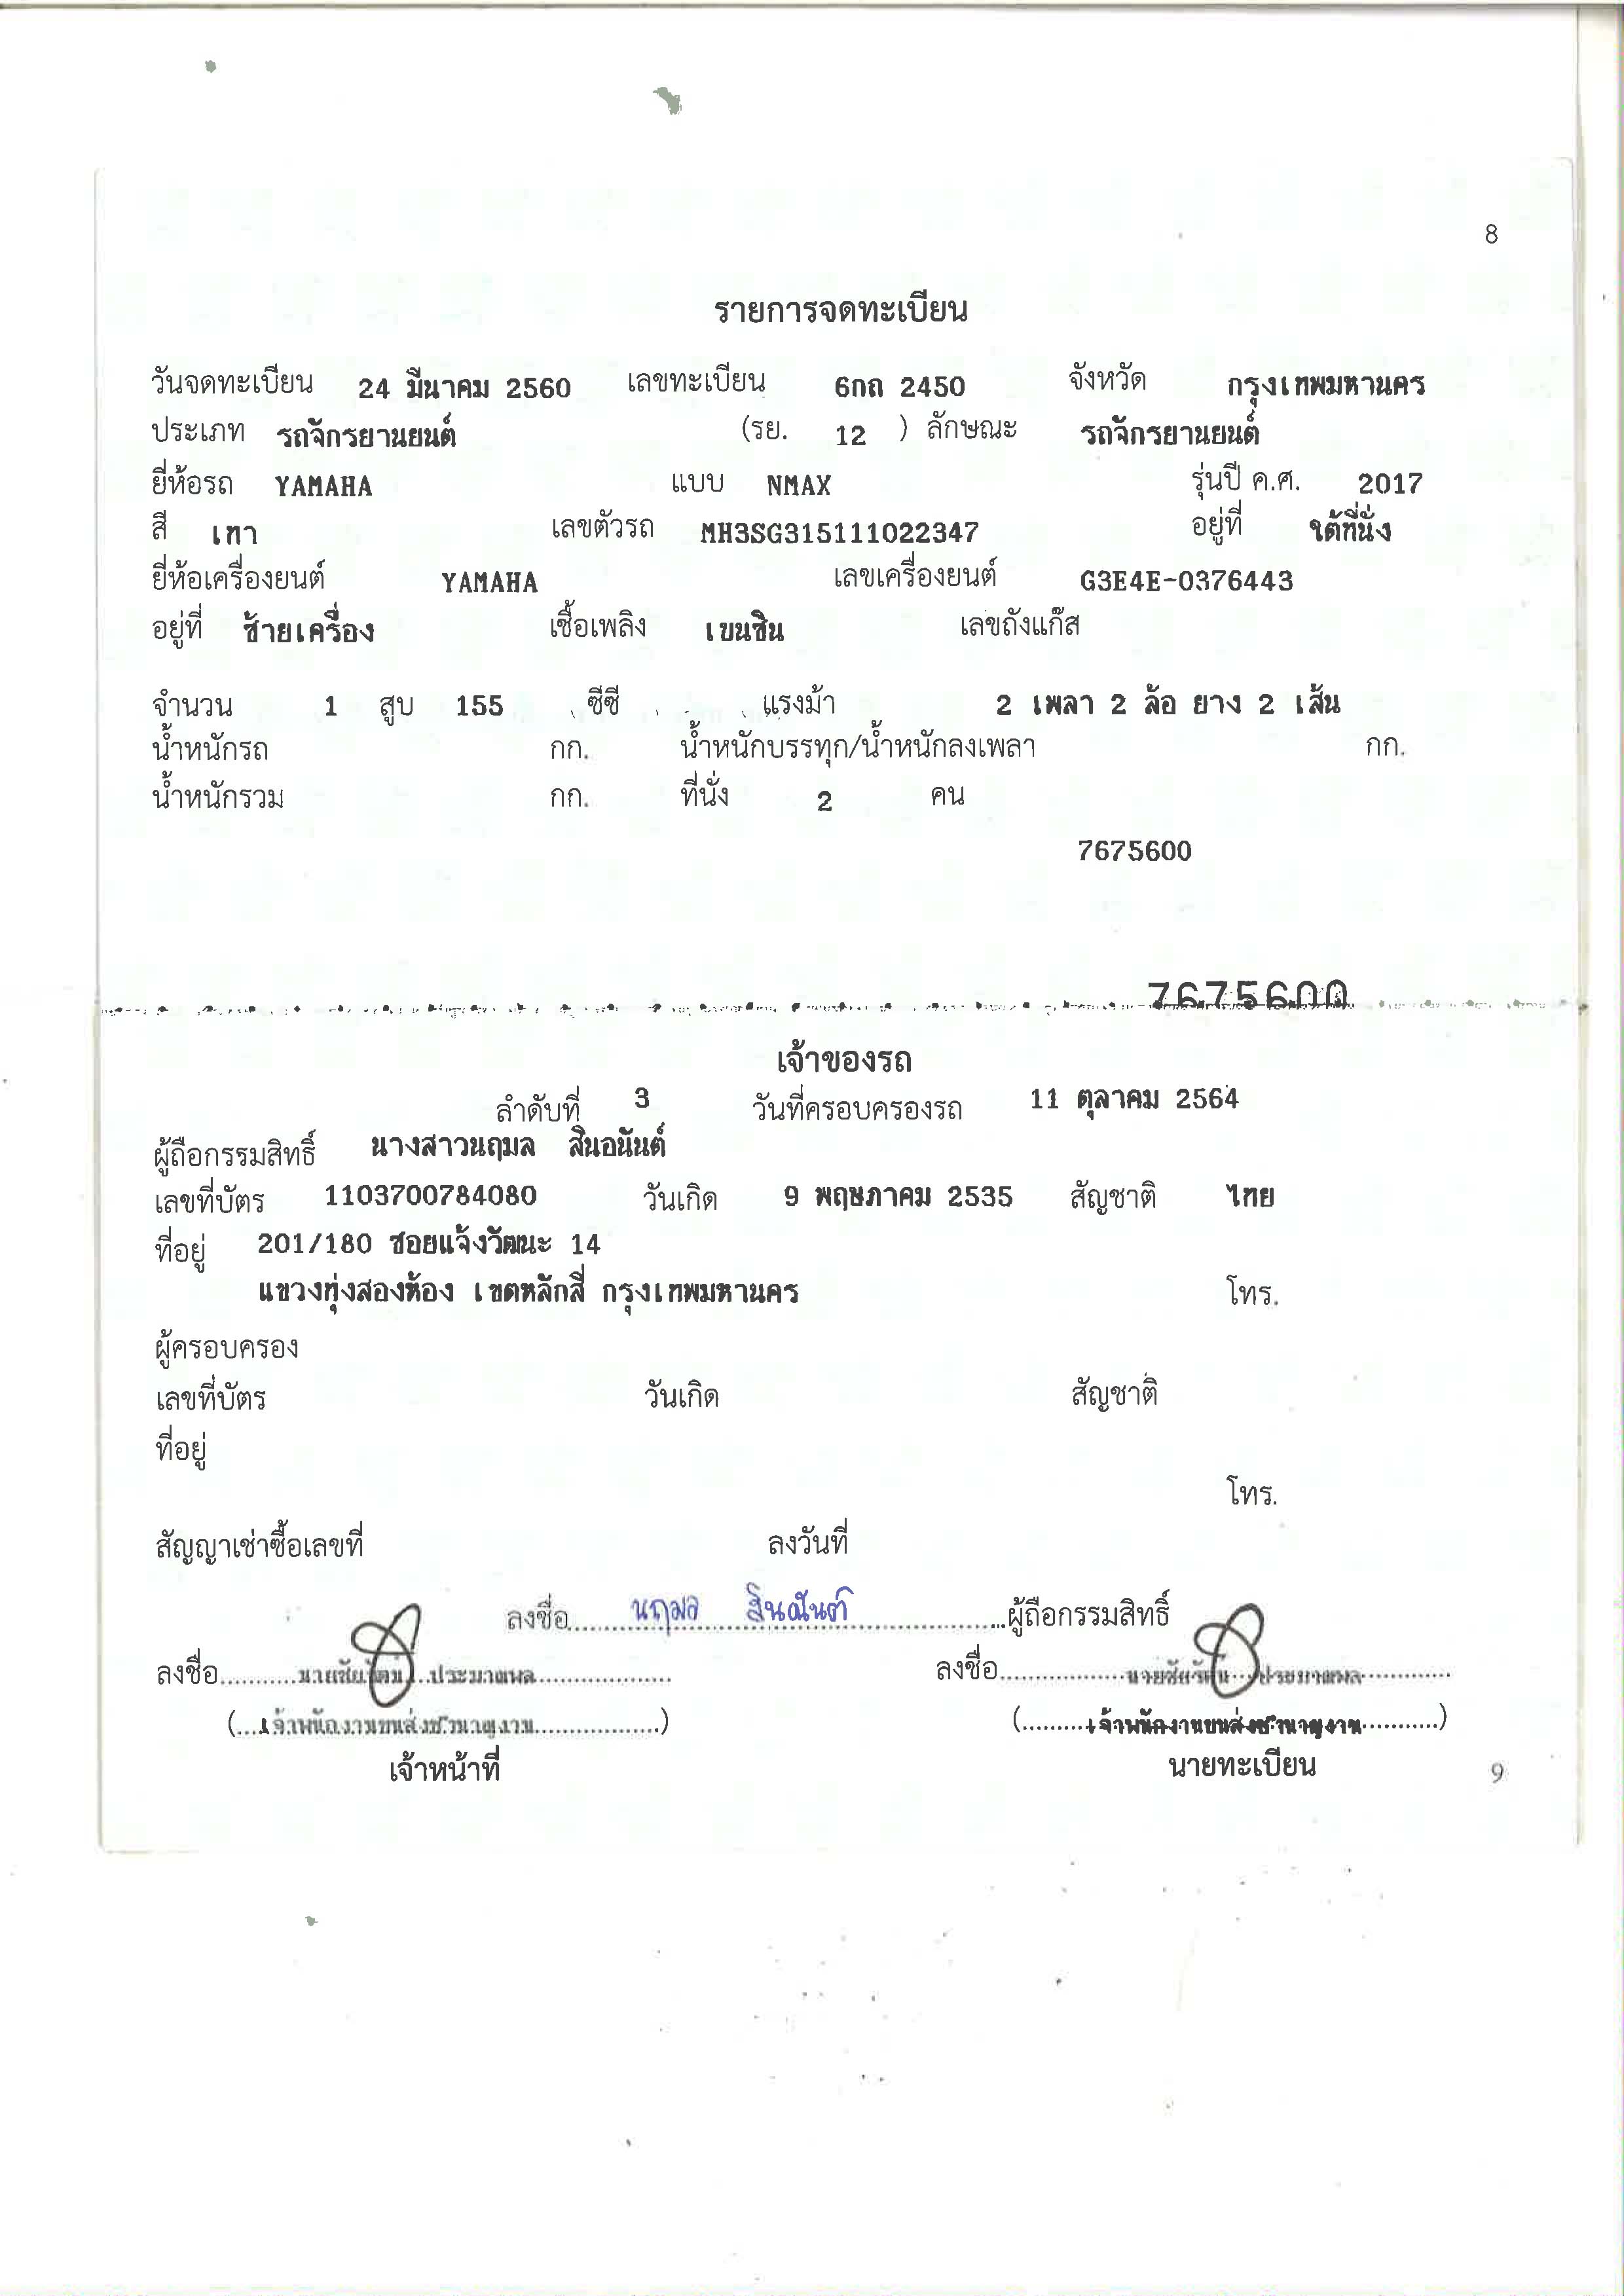 8
รายการจดทะเบียน
วันจดทะเบียน 24 มีนาคม 2560 เลขทะเบียน 6กถ 2450 จังหวัด กรุงเทพมหานคร
ประเภท รถจักรยานยนต์ (รย. 12 ) ลักษณะ รถจักรยานยนต์
ยี่ห้อรถ YAMAHA แบบ NMAX รุ่นปี ค.ศ. 2017
สี เทา เลขตัวรถ MH3SG315111022347 อยู่ที่ ใต้ที่นั่ง
ยี่ห้อเครื่องยนต์ YAMAHA เลขเครื่องยนต์ G3E4E-0376443
อยู่ที่ ซ้ายเครื่อง เชื้อเพลิง เบนซิน เลขถังแก๊ส
จำนวน 1 สูบ 155 ซีซี แรงม้า 2 เพลา 2 ล้อ ยาง 2 เส้น
น้ำหนักรถ กก. น้ำหนักบรรทุก/น้ำหนักลงเพลา กก.
น้ำหนักรวม กก. ที่นั่ง 2 คน
7675600
7675600
เจ้าของรถ
ลำดับที่ 3 วันที่ครอบครองรถ 11 ตุลาคม 2564
ผู้ถือกรรมสิทธิ์ นางสาวนฤมล สินอนันต์
เลขที่บัตร 1103700784080 วันเกิด 9 พฤษภาคม 2535 สัญชาติ ไทย
ที่อยู่ 201/180 ซอยแจ้งวัฒนะ 14
แขวงทุ่งสองห้อง เขตหลักสี่ กรุงเทพมหานคร โทร.
ผู้ครอบครอง
เลขที่บัตร วันเกิด สัญชาติ
ที่อยู่
โทร.
สัญญาเช่าซื้อเลขที่ ลงวันที่
ลงชื่อ นฤมล ผู้ถือกรรมสิทธิ์
ลงชื่อ ลงชื่อ
(เจ้าพนักงานขนส่งชำนาญงาน) (เจ้าพนักงานขนส่งชำนาญงาน)
เจ้าหน้าที่ นายทะเบียน
9